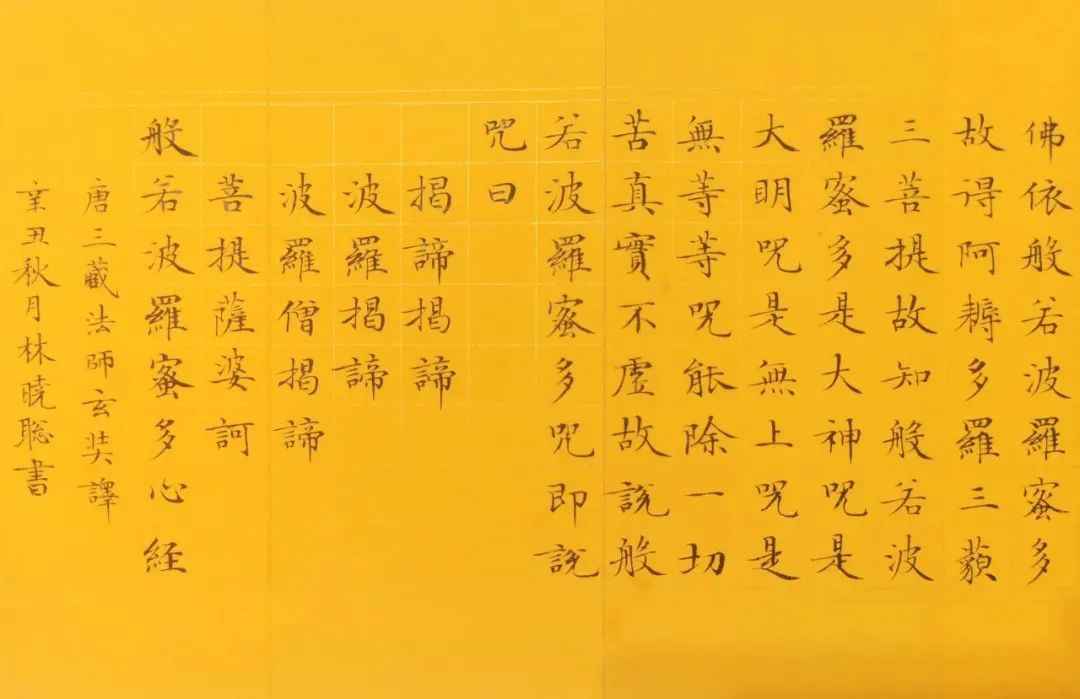 佛依般若波羅蜜多
故得阿耨多羅三藐
三菩提故知般若波
羅蜜多是大神咒是
大明咒是無上咒是
無等等咒能除一切
苦真實不虛故說般
若波羅蜜多咒即說
咒曰
揭諦揭諦
波羅揭諦
波羅僧揭諦
菩提薩婆訶
般若波羅蜜多心経
唐三藏法師玄奘譯
辛丑秋月林曉聡書